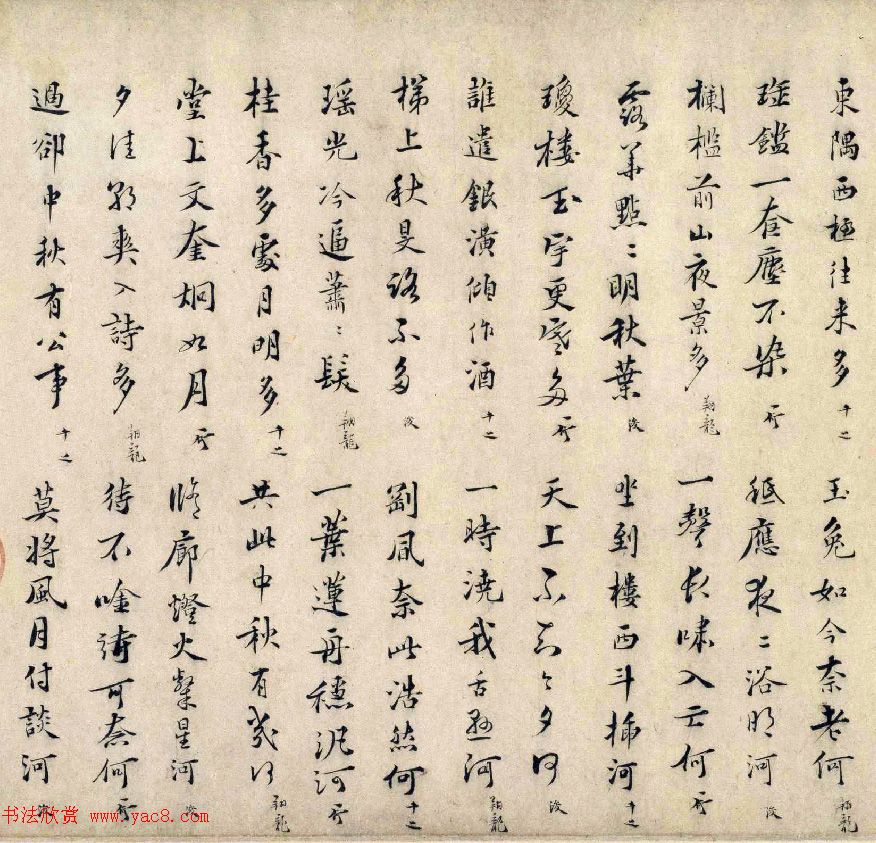 東隅西極往來多 十二 玉兔如今奈老何 翔龍
瑤鑑一奩塵不染 所 秖應夜〻浴明河 浚
欄檻前山夜景多 翔龍 一聲長嘯入云何 所
露華點〻明秋葉 浚 坐到樓西斗插河 十二
瓊樓玉宇更寒多 所 天上不知今夕何 浚
誰遣銀潢傾作酒 十二 一時澆我舌懸河 翔龍
梯上秋旻路不多 浚 剛風奈此浩然何 十二
瑤光冷逼蕭〻髮 翔龍 一葉蓮舟穩汎河 所
桂香多處月明多 十二 共此中秋有幾何 翔龍
堂上文奎炯如月 所 脩廊燈火粲星河 浚
夕佳朝爽入詩多 翔龍 待不唫詩可奈何 所
過卻中秋有公事 十二 莫將風月付談河 浚
书法欣赏 www.yac8.com